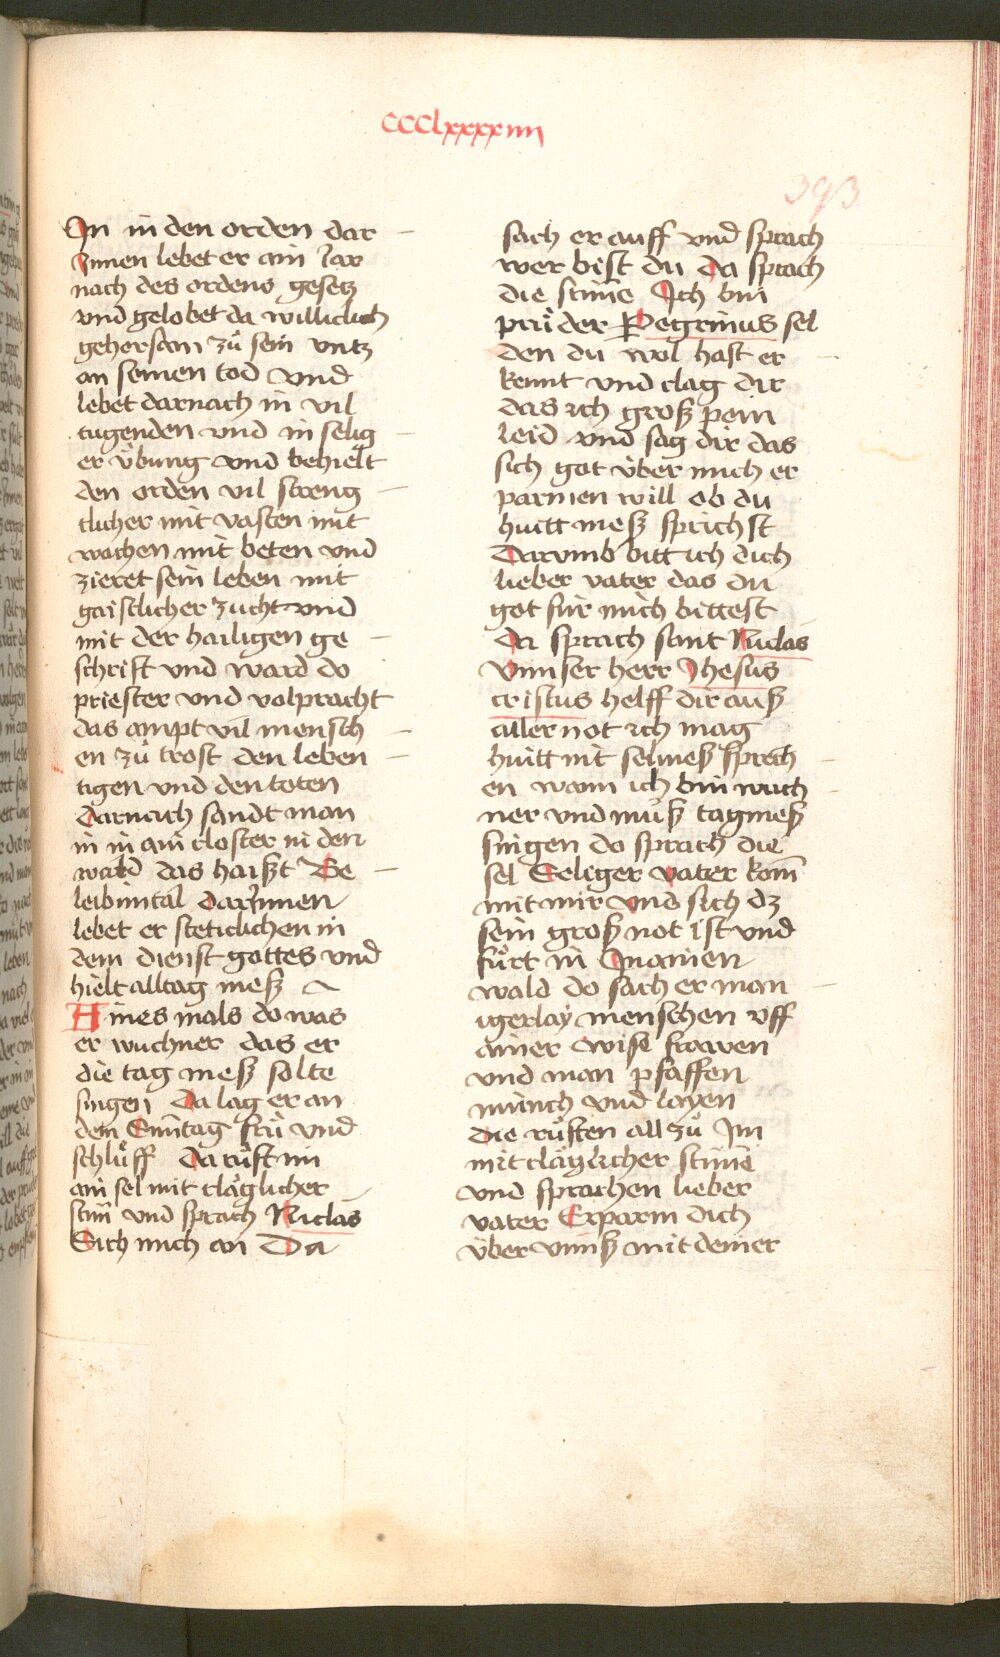 CCClxxxxiiii
393
In in den orden dar
Jnnen lebet er ain Jar
nach des ordens gesetz
vnd gelobet da williclich
gehorsam zů sein vntz
an seinen tod vnd
lebet darnach in vil
tugenden vnd in selig
er übung vnd behielt
den orden vil streng
clicher mit vasten mit
wachen mit beten vnd
zieret sein leben mit
gaistlicher zucht vnd
mit der hailigen ge
schrift vnd ward do
priester vnd volpracht
das ampt vil mensch
en zů trost den leben
tigen vnd den toten
Darnach sandt man
in in ain closter in den
wald das haißt Be
leibintal Darinnen
lebet er steticlichen in
dem dienst gottes vnd
hielt alltag meß
Aines mals do was
er wuchner das er
die tag meß solte
singen Da lag er an
dem Sunntag frů vnd
schlůff Da růft im
ain sel mit cläglicher
stim vnd sprach Niclas
Sich mich an Da
sach er auff vnd sprach
wer bist du Da sprach
die stime Ich bin
průder Pegrinus sel
den du wol hast er
kennt vnd clag dir
das ich groß pein
leid vnd sag dir das
sich got über mich er
parmen will ob du
huitt meß sprichst
Darumb bitt ich dich
lieber vater das du
got für mich bittest
Da sprach sant Niclas
Vnnser herr Jhesus
cristus helff dir auß
aller not ich mag
huitt nit selmeß sprech
en wann ich bin wuch
ner vnd můß tagmeß
singen do sprach die
sel Seliger vater kom
mit mir vnd sich dz
sein groß not ist vnd
fůrt in In ainen
wald do sach er man
igerlay menschen vff
ainer wise frawen
vnd man pfaffen
münch vnd layen
Die růften all zů Im
mit cläglicher stime
vnd sprachen lieber
vater Erparm dich
über vnnß mit deiner